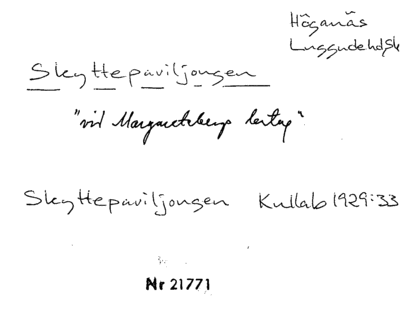 Höganäs
Luggudehd, Sk
Skyttepaviljongen
"vid Margaretebergs lertag"
Skyttepaviljongen Kullab 1929:33
Nr 21771